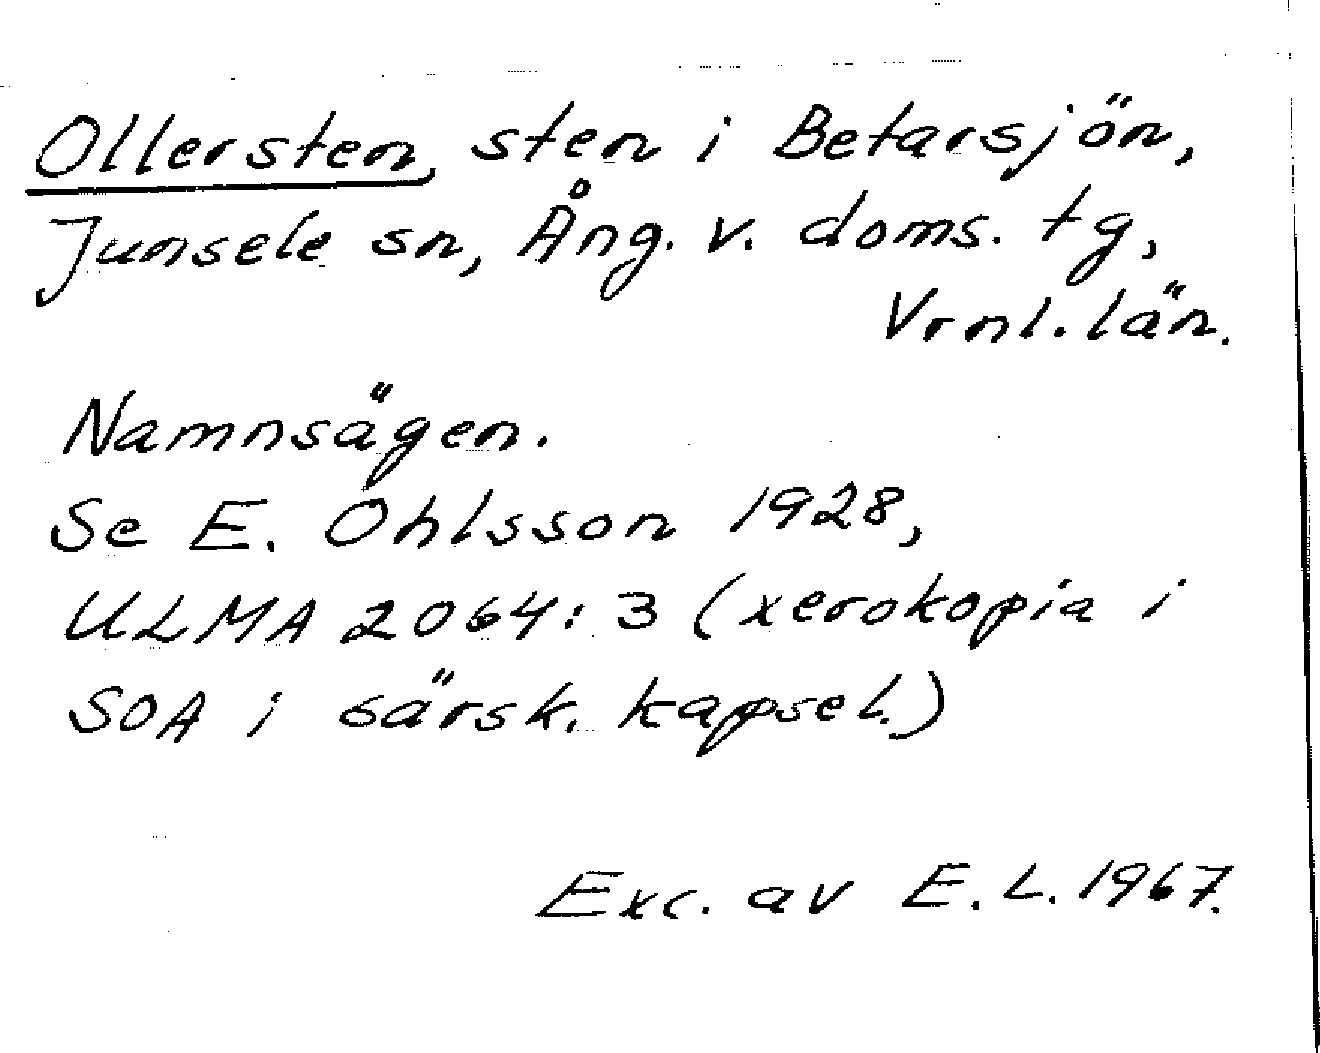 Ollersten, sten i Betarsjön,
Junsele sn, Ång. v. doms. tg,
Vrnl. län.
Namnsägen.
Se E. Ohlsson 1928,
ULMA 2064:3 (xerokopia i
SOA i särsk. kapsel.)
Exc. av E. L. 1967.